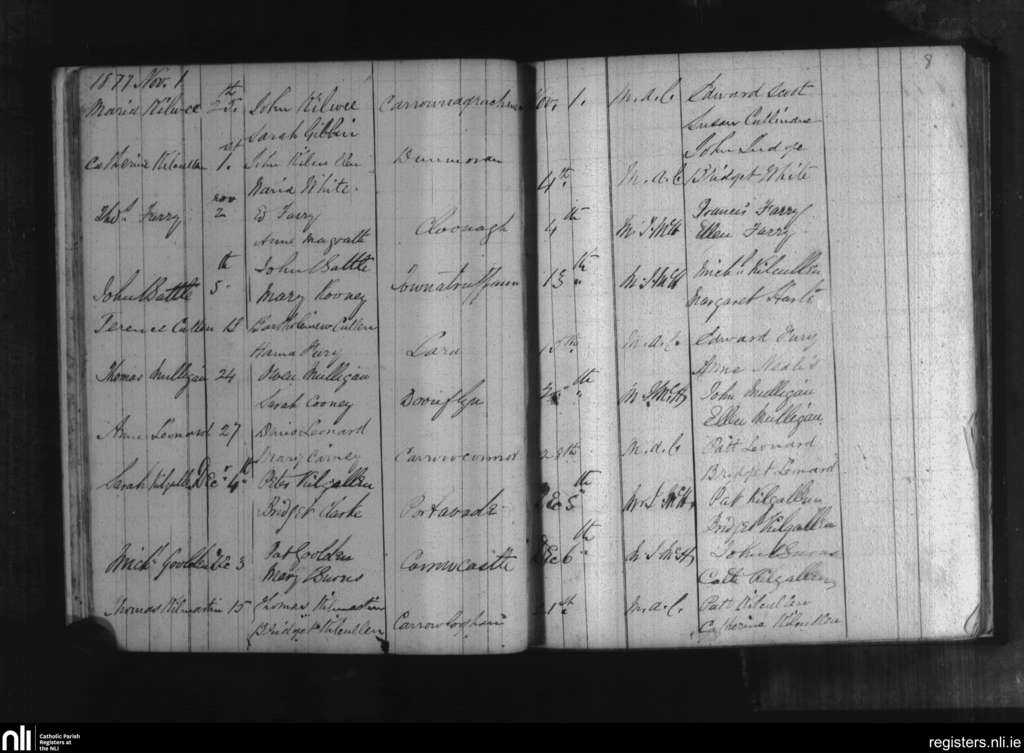 8
1877 Nov. 1
Maria Kilwee 25th John Kilwee Nov. 1. M. a. C. Edward Scott
Sarah Gibbin Susan Cullinane
Catherine Kilcullen 1st John Kilcullen Dunmoran John Judge
Maria White 4th M. a. C. Bridget White
Thos. Farry Nov 2 Ed Farry Cloonagh 4th M. J. McH Francis Farry
Anne Magrath Ellen Farry
John Battle 5th John Battle 13th M J McH Michl. Kilcullen
Mary Rooney Margaret Harte
Terence Cullen 13 Bartholomew Cullen Lara 15th M. a. C. Edward Fury
Hanna Fury Anne
Thomas Mulligan 24 Owen Mulligan M J McH John Mulligan
Sarah Cooney Ellen Mulligan
Anne Leonard 27 Leonard 28th M. a. C. Patt Leonard
Mary Carney Bridget Leonard
Sarah Kilgallen Decr. 4th Peter Kilgallen Portavade Dec 5th M J McH Pat Kilgallen
Bridget Clarke Bridget Kilgallen
Michl. Goolden Dec 3 Pat Goolden Carrowcastle Dec 6th M J McH John Burns
Mary Burns Cath Kilgallen
Thomas Kilmartin 15 Thomas Kilmartin 21st M. a. C. Patt Kilcullen
Bridget Kilcullen Catherine Kilcullen
nli
Catholic Parish
Registers at
the NLI
registers.nli.ie